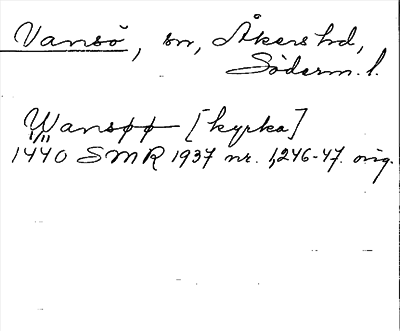 Vansö, sn, Åkers hd,
Söderm. l.
Wansøø [kyrka]
1/11
1440 SMR 1937 nr. 1,246-47. orig.